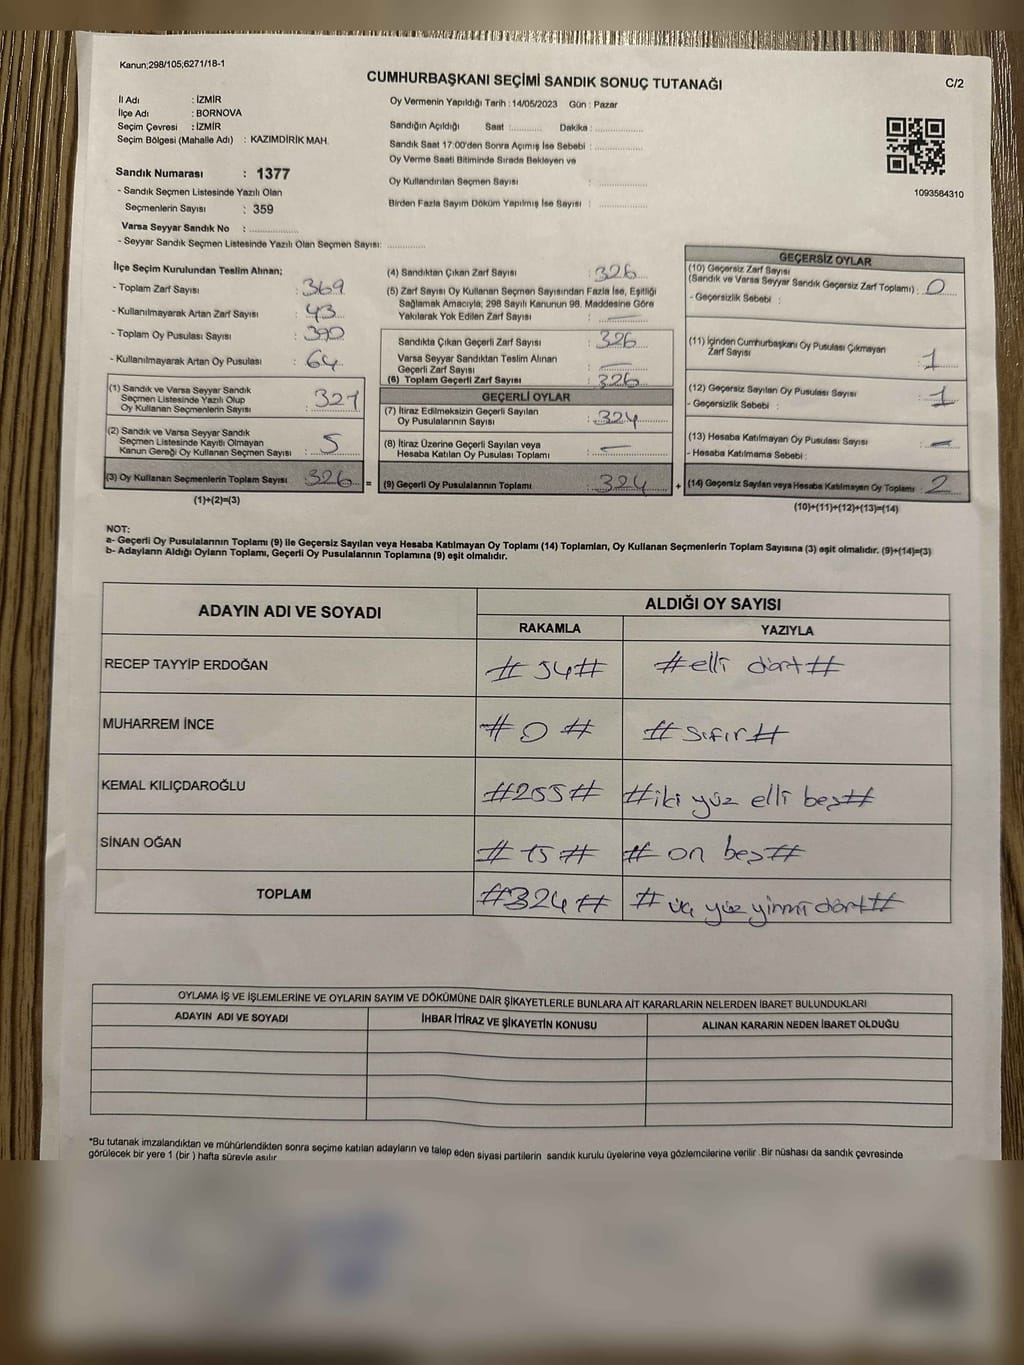 Kanun;298/105;6271/18-1
CUMHURBAŞKANI SEÇİMİ SANDIK SONUÇ TUTANAĞI
C/2
İl Adı : İZMİR
İlçe Adı : BORNOVA
Seçim Çevresi : İZMİR
Seçim Bölgesi (Mahalle Adı) : KAZIMDİRİK MAH.
Sandık Numarası : 1377
- Sandık Seçmen Listesinde Yazılı Olan
Seçmenlerin Sayısı : 359
Varsa Seyyar Sandık No : ..............
- Seyyar Sandık Seçmen Listesinde Yazılı Olan Seçmen Sayısı: ............
Oy Vermenin Yapıldığı Tarih : 14/05/2023 Gün : Pazar
Sandığın Açıldığı Saat :.......... Dakika : ....................
Sandık Saat 17:00'den Sonra Açımış İse Sebebi : ....................
Oy Verme Saati Bitiminde Sırada Bekleyen ve
Oy Kullandırılan Seçmen Sayısı : ....................
Birden Fazla Sayım Döküm Yapılmış İse Sayısı : ....................
1093584310
İlçe Seçim Kurulundan Teslim Alınan;
- Toplam Zarf Sayısı : 369
- Kullanılmayarak Artan Zarf Sayısı : 43
- Toplam Oy Pusulası Sayısı : 390
- Kullanılmayarak Artan Oy Pusulası : 64
(1) Sandık ve Varsa Seyyar Sandık
Seçmen Listesinde Yazılı Olup
Oy Kullanan Seçmenlerin Sayısı : 321
(2) Sandık ve Varsa Seyyar Sandık
Seçmen Listesinde Kayıtlı Olmayan
Kanun Gereği Oy Kullanan Seçmen Sayısı : 5
(3) Oy Kullanan Seçmenlerin Toplam Sayısı : 326
(1)+(2)=(3)
=
(4) Sandıktan Çıkan Zarf Sayısı : 326
(5) Zarf Sayısı Oy Kullanan Seçmen Sayısından Fazla İse, Eşitliği
Sağlamak Amacıyla; 298 Sayılı Kanunun 98. Maddesine Göre
Yakılarak Yok Edilen Zarf Sayısı : —
Sandıkta Çıkan Geçerli Zarf Sayısı : 326
Varsa Seyyar Sandıktan Teslim Alınan
Geçerli Zarf Sayısı : —
(6) Toplam Geçerli Zarf Sayısı : 326
GEÇERLİ OYLAR
(7) İtiraz Edilmeksizin Geçerli Sayılan
Oy Pusulalarının Sayısı : 324
(8) İtiraz Üzerine Geçerli Sayılan veya
Hesaba Katılan Oy Pusulası Toplamı : —
(9) Geçerli Oy Pusulalarının Toplamı : 324
+
GEÇERSİZ OYLAR
(10) Geçersiz Zarf Sayısı
(Sandık ve Varsa Seyyar Sandık Geçersiz Zarf Toplamı) : 0
- Geçersizlik Sebebi :
(11) İçinden Cumhurbaşkanı Oy Pusulası Çıkmayan
Zarf Sayısı : 1
(12) Geçersiz Sayılan Oy Pusulası Sayısı : 1
- Geçersizlik Sebebi :
(13) Hesaba Katılmayan Oy Pusulası Sayısı : —
- Hesaba Katılmama Sebebi :
(14) Geçersiz Sayılan veya Hesaba Katılmayan Oy Toplamı : 2
(10)+(11)+(12)+(13)=(14)
NOT:
a- Geçerli Oy Pusulalarının Toplamı (9) ile Geçersiz Sayılan veya Hesaba Katılmayan Oy Toplamı (14) Toplamları, Oy Kullanan Seçmenlerin Toplam Sayısına (3) eşit olmalıdır. (9)+(14)=(3)
b- Adayların Aldığı Oyların Toplamı, Geçerli Oy Pusulalarının Toplamına (9) eşit olmalıdır.
ADAYIN ADI VE SOYADI
ALDIĞI OY SAYISI
RAKAMLA YAZIYLA
RECEP TAYYİP ERDOĞAN #54# #elli dört#
MUHARREM İNCE #0# #Sıfır#
KEMAL KILIÇDAROĞLU #255# #iki yüz elli beş#
SİNAN OĞAN #15# #on beş#
TOPLAM #324# #üç yüz yirmi dört#
OYLAMA İŞ VE İŞLEMLERİNE VE OYLARIN SAYIM VE DÖKÜMÜNE DAİR ŞİKAYETLERLE BUNLARA AİT KARARLARIN NELERDEN İBARET BULUNDUKLARI
ADAYIN ADI VE SOYADI İHBAR İTİRAZ VE ŞİKAYETİN KONUSU ALINAN KARARIN NEDEN İBARET OLDUĞU
*Bu tutanak imzalandıktan ve mühürlendikten sonra seçime katılan adayların ve talep eden siyasi partilerin sandık kurulu üyelerine veya gözlemcilerine verilir .Bir nüshası da sandık çevresinde
görülecek bir yere 1 (bir ) hafta süreyle asılır